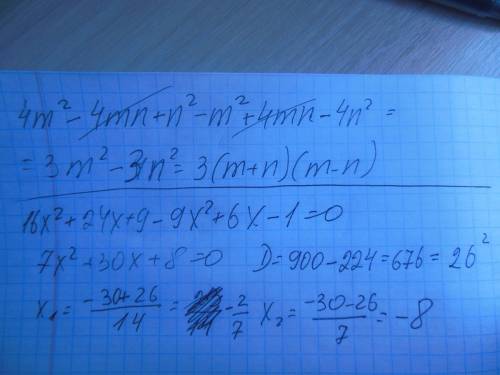 4m² - 4mn + n² - m² + 4mn - 4n² =
= 3m² - 3n² = 3(m+n)(m-n)
16x² + 24x + 9 - 9x² + 6x - 1 = 0
7x² + 30x + 8 = 0 D = 900 - 224 = 676 = 26²
x₁ = (-30+26)/14 = -2/7 x₂ = (-30-26)/7 = -8